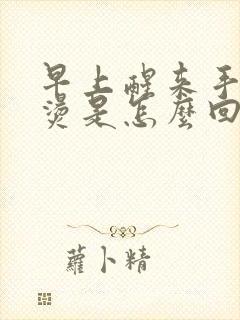 早上醒来手
燙是怎麼回
蘿卜精